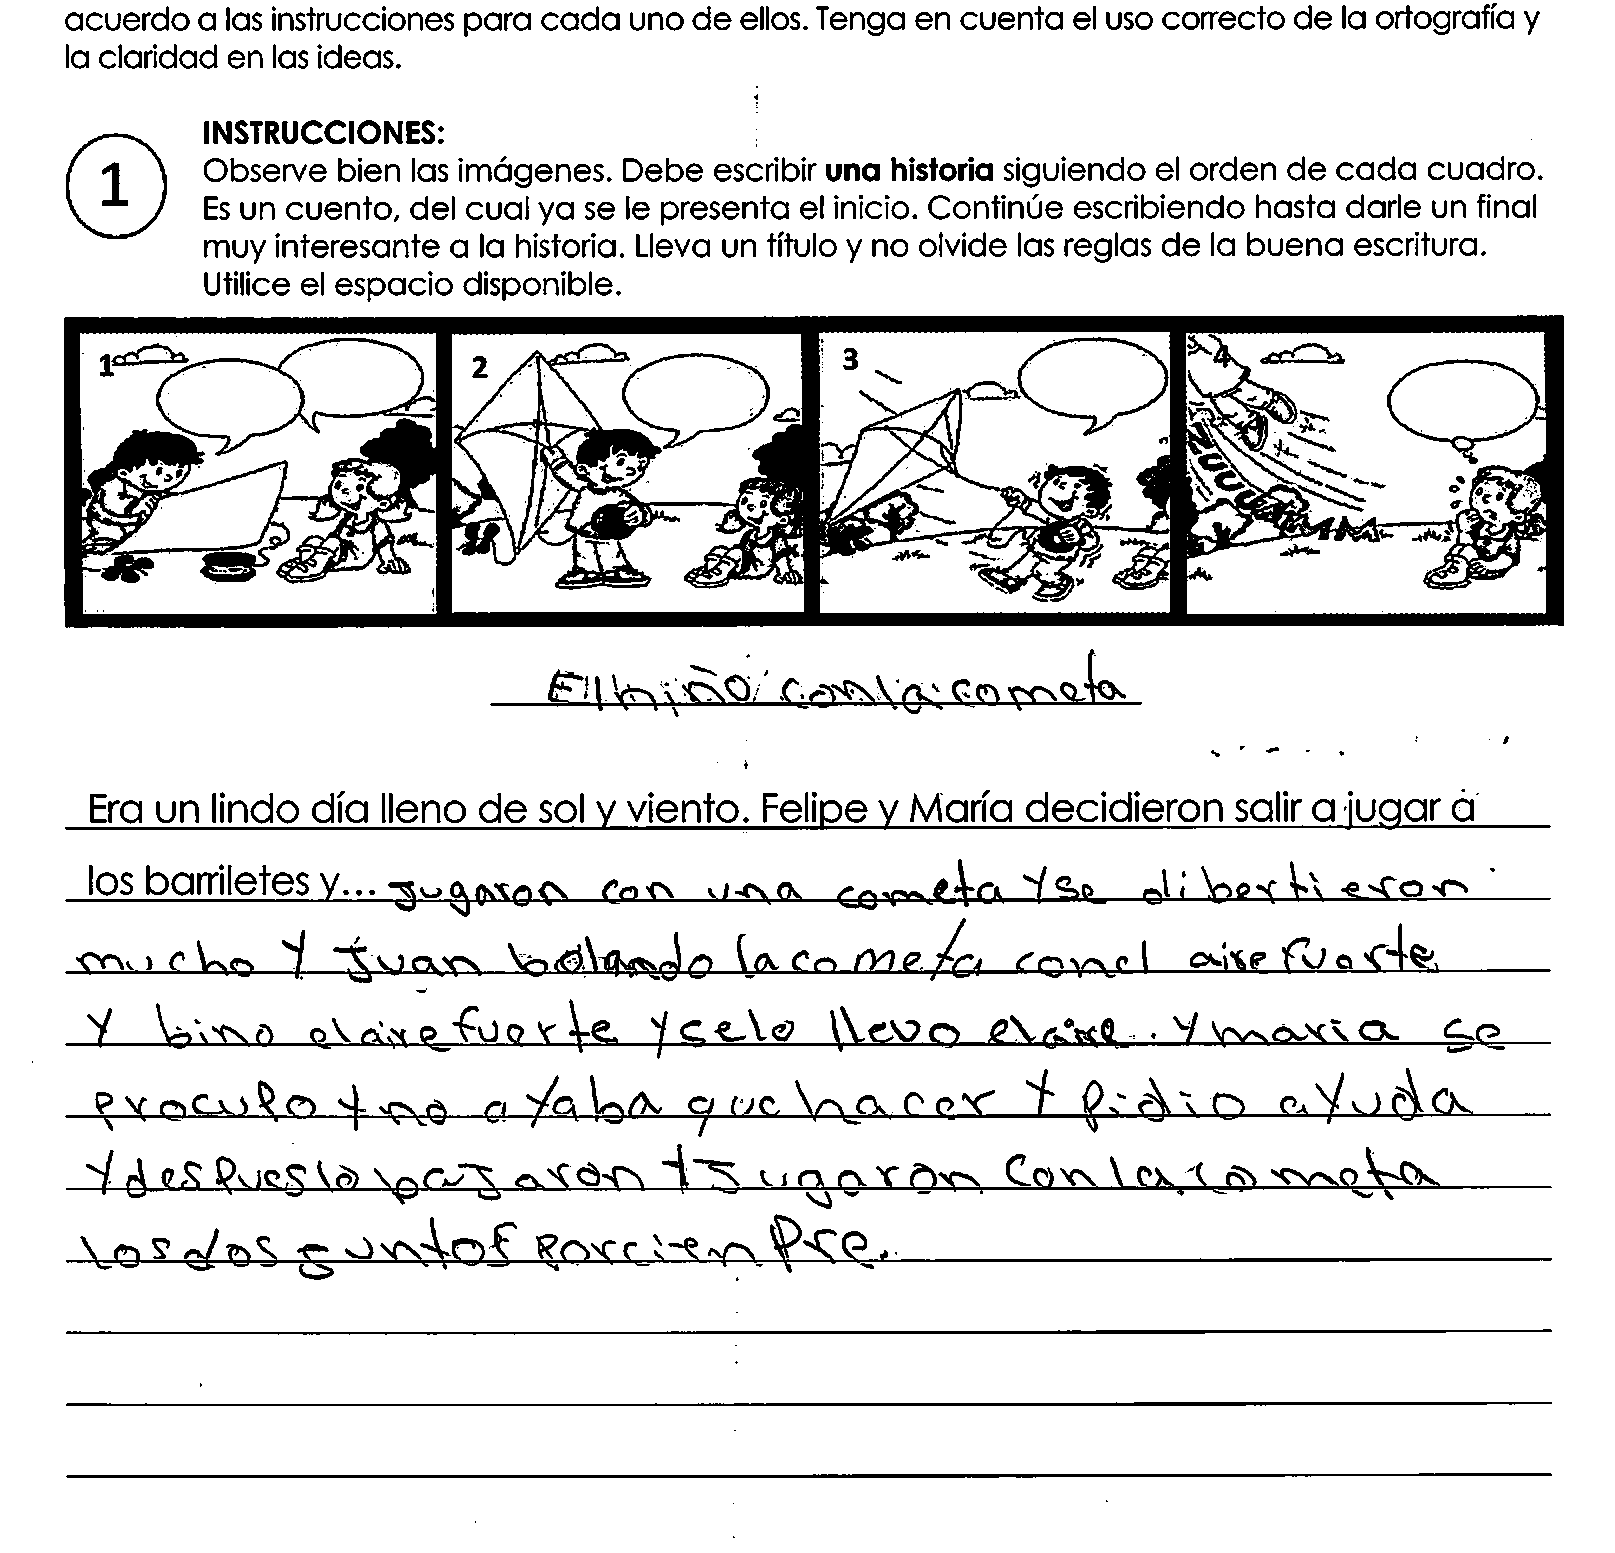 acuerdo a las instrucciones para cada uno de ellos. Tenga en cuenta el uso correcto de la ortografía y
la claridad en las ideas.
1
INSTRUCCIONES:
Observe bien las imágenes. Debe escribir una historia siguiendo el orden de cada cuadro.
Es un cuento, del cual ya se le presenta el inicio. Continúe escribiendo hasta darle un final
muy interesante a la historia. Lleva un título y no olvide las reglas de la buena escritura.
Utilice el espacio disponible.
1 2 3 4
ZUUUUMMM
El niño con la cometa
Era un lindo día lleno de sol y viento. Felipe y María decidieron salir a jugar a
los barriletes y... jugaron con una cometa y se dibertieron
mucho y Juan bolando la cometa con el aire fuerte
y bino el aire fuerte y se lo llevo el aire. y maria se
proculo y no ayaba que hacer y pidio ayuda
y despues lo bajaron y jugaron con la cometa
los dos guntos por cienpre.